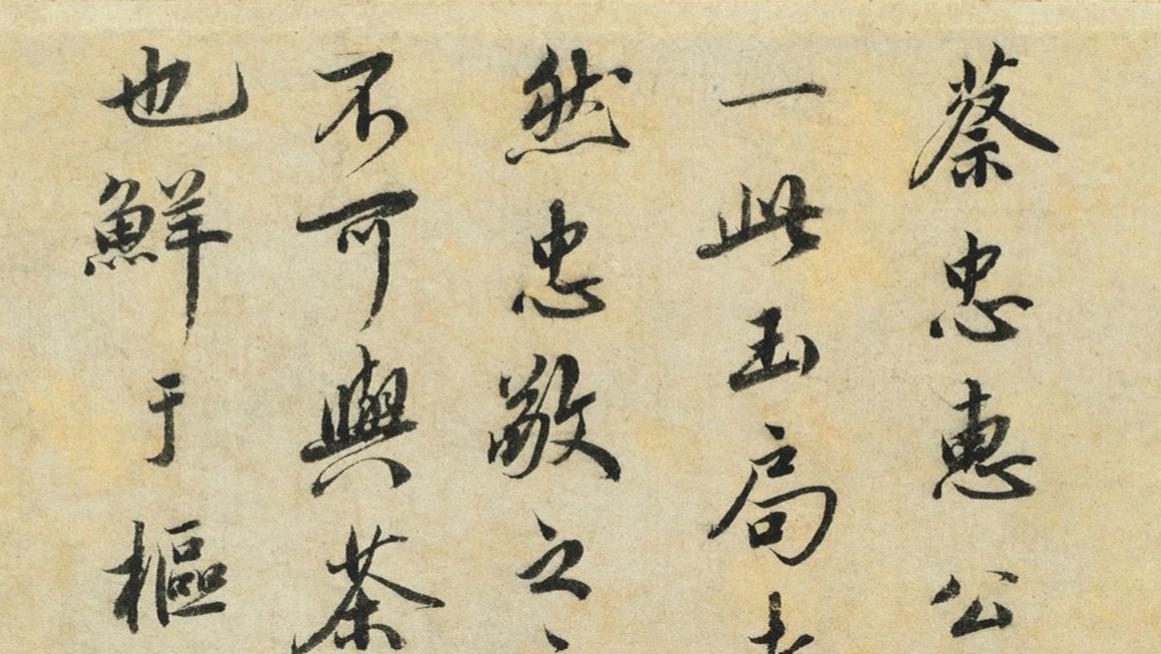 蔡忠惠公
一此玉局
然忠敬之
不可與茶
也鮮于樞